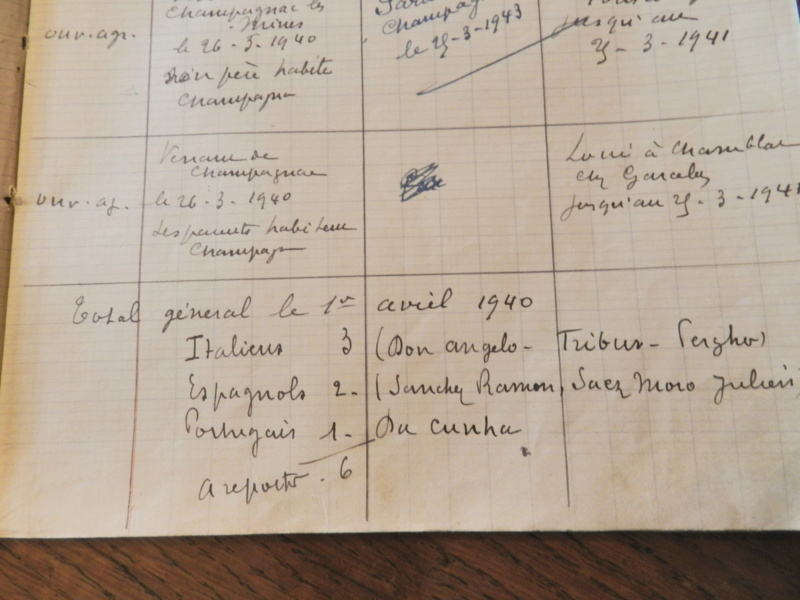 ouv. agr.
Champagnac les
Mines
le 26-5-1940
Son père habite
Champagn
Champag
le 25-3-1943
jusqu'au
25-3-1941
ouv. ag.
Venant de
Champagnac
le 26-3-1940
Les parents habitent
Champagn
Loué à Chamblac
chez
jusqu'au 25-3-1941
Total général le 1er avril 1940
Italiens 3 (Don angelo - Tribus -
Espagnols 2 - (Sanchez Ramon, Saez Moro Julien)
Portugais 1 - Da Cunha
a reporter - 6